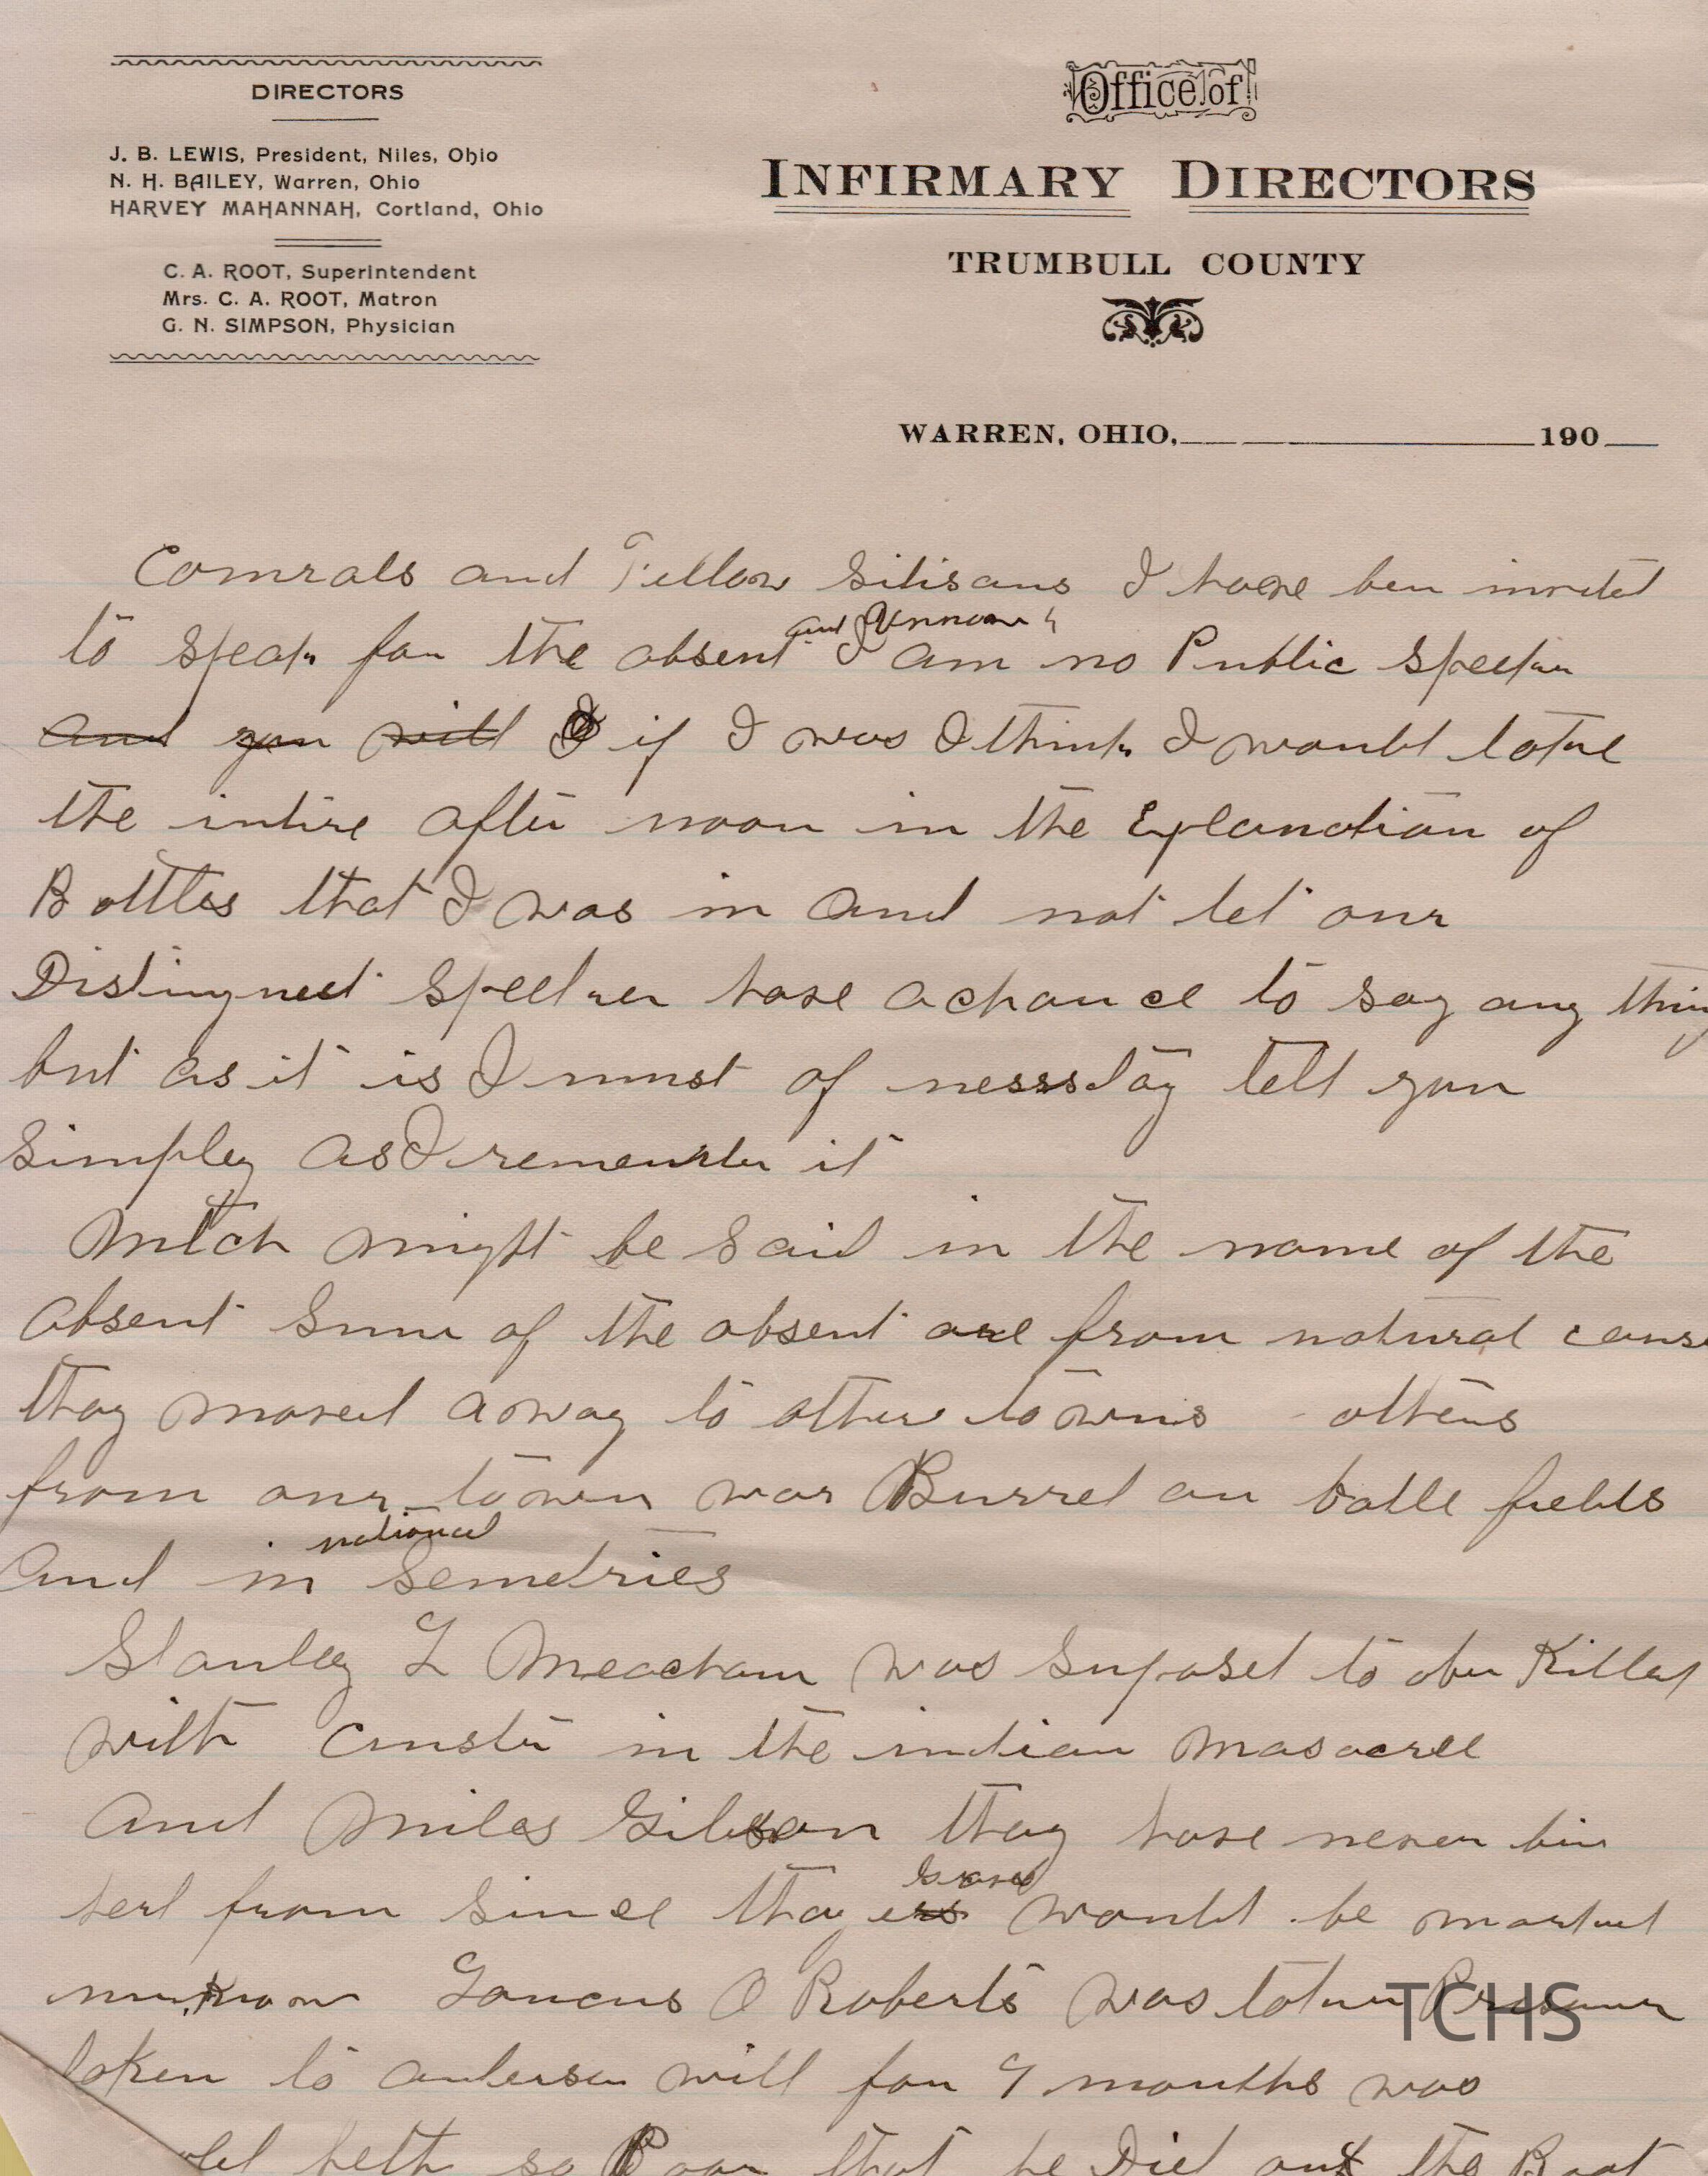 DIRECTORS
J. B. LEWIS, President, Niles, Ohio
N. H. BAILEY, Warren, Ohio
HARVEY MAHANNAH, Cortland, Ohio
C. A. ROOT, Superintendent
Mrs. C. A. ROOT, Matron
G. N. SIMPSON, Physician
Office of
INFIRMARY DIRECTORS
TRUMBULL COUNTY
WARREN, OHIO, 190
Comrads and Fellow Sitisans I have ben invited
and Unnown
to speak for the absent I am no Public Speeker
and you will if I was I think I would take
the intire after noon in the Explanation of
Battles that I was in and not let our
Distingued Speeker have a chance to say any thing
but as it is I must of nesssday tell you
Simpley as I remember it
Mutch might be Said in the name of the
absent Sum of the absent are from natural cause
thay moved away to other towns others
from our town was Burred on batle fields
national
and in Semetries
Stanley L Meacham was Suposed to ben Killed
with Custer in the indian Masacree
And Miles Gibson thay have never bin
herd from Since thay Graves
ers would be marked
unknown O Roberts was taken Prisoner
taken to anderson vill for 9 months was
helth so Poor that he Died on the Boat
TCHS